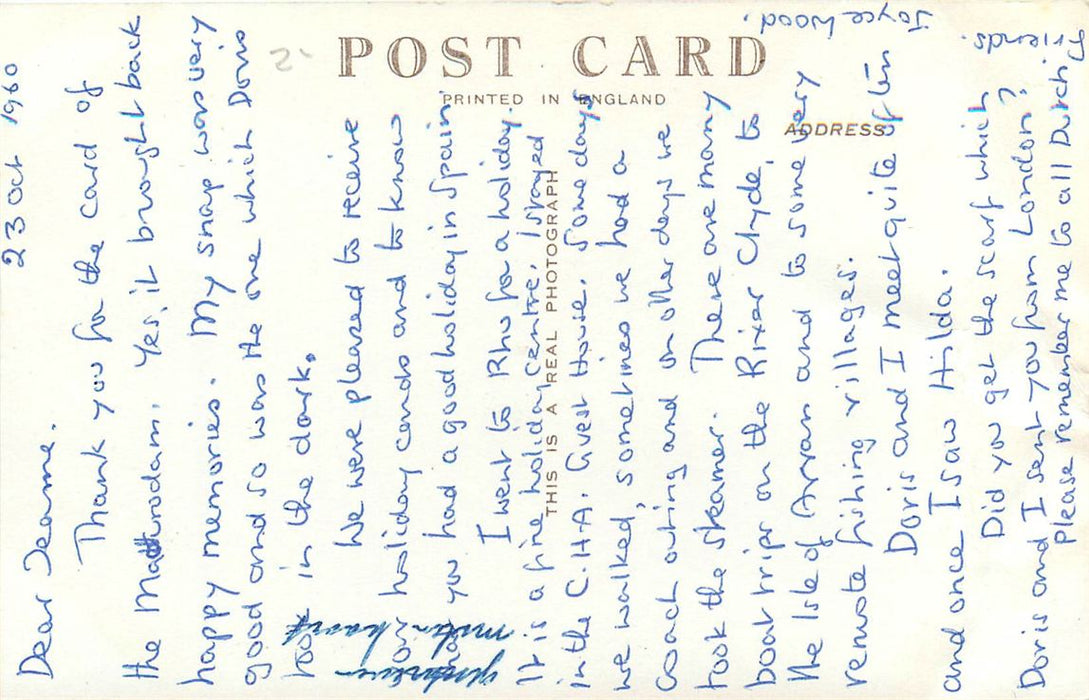 POST CARD
PRINTED IN ENGLAND
ADDRESS
THIS IS A REAL PHOTOGRAPH
23 Oct 1960
Dear Jeanne.
Thank you for the card of
the Matterodam. Yes, it brought back
happy memories. My snap was very
good and so was the one which Doris
took in the dark.
We were pleased to receive
your holiday cards and to know
you had a good holiday in Spain.
I went to Rhu for a holiday.
It is a fine holiday centre. I stayed
in the C.H.A. Guest House. Some days
we walked, sometimes we had a
coach outing and on other days we
took the steamer. There are many
boat trips on the River Clyde, to
the Isle of Arran and to some very
remote fishing villages.
Doris and I meet quite often
and once I saw Hilda.
Did you get the scarf which
Doris and I sent you from London?
Please remember me to all Dutch
friends.
Joyce Wood.